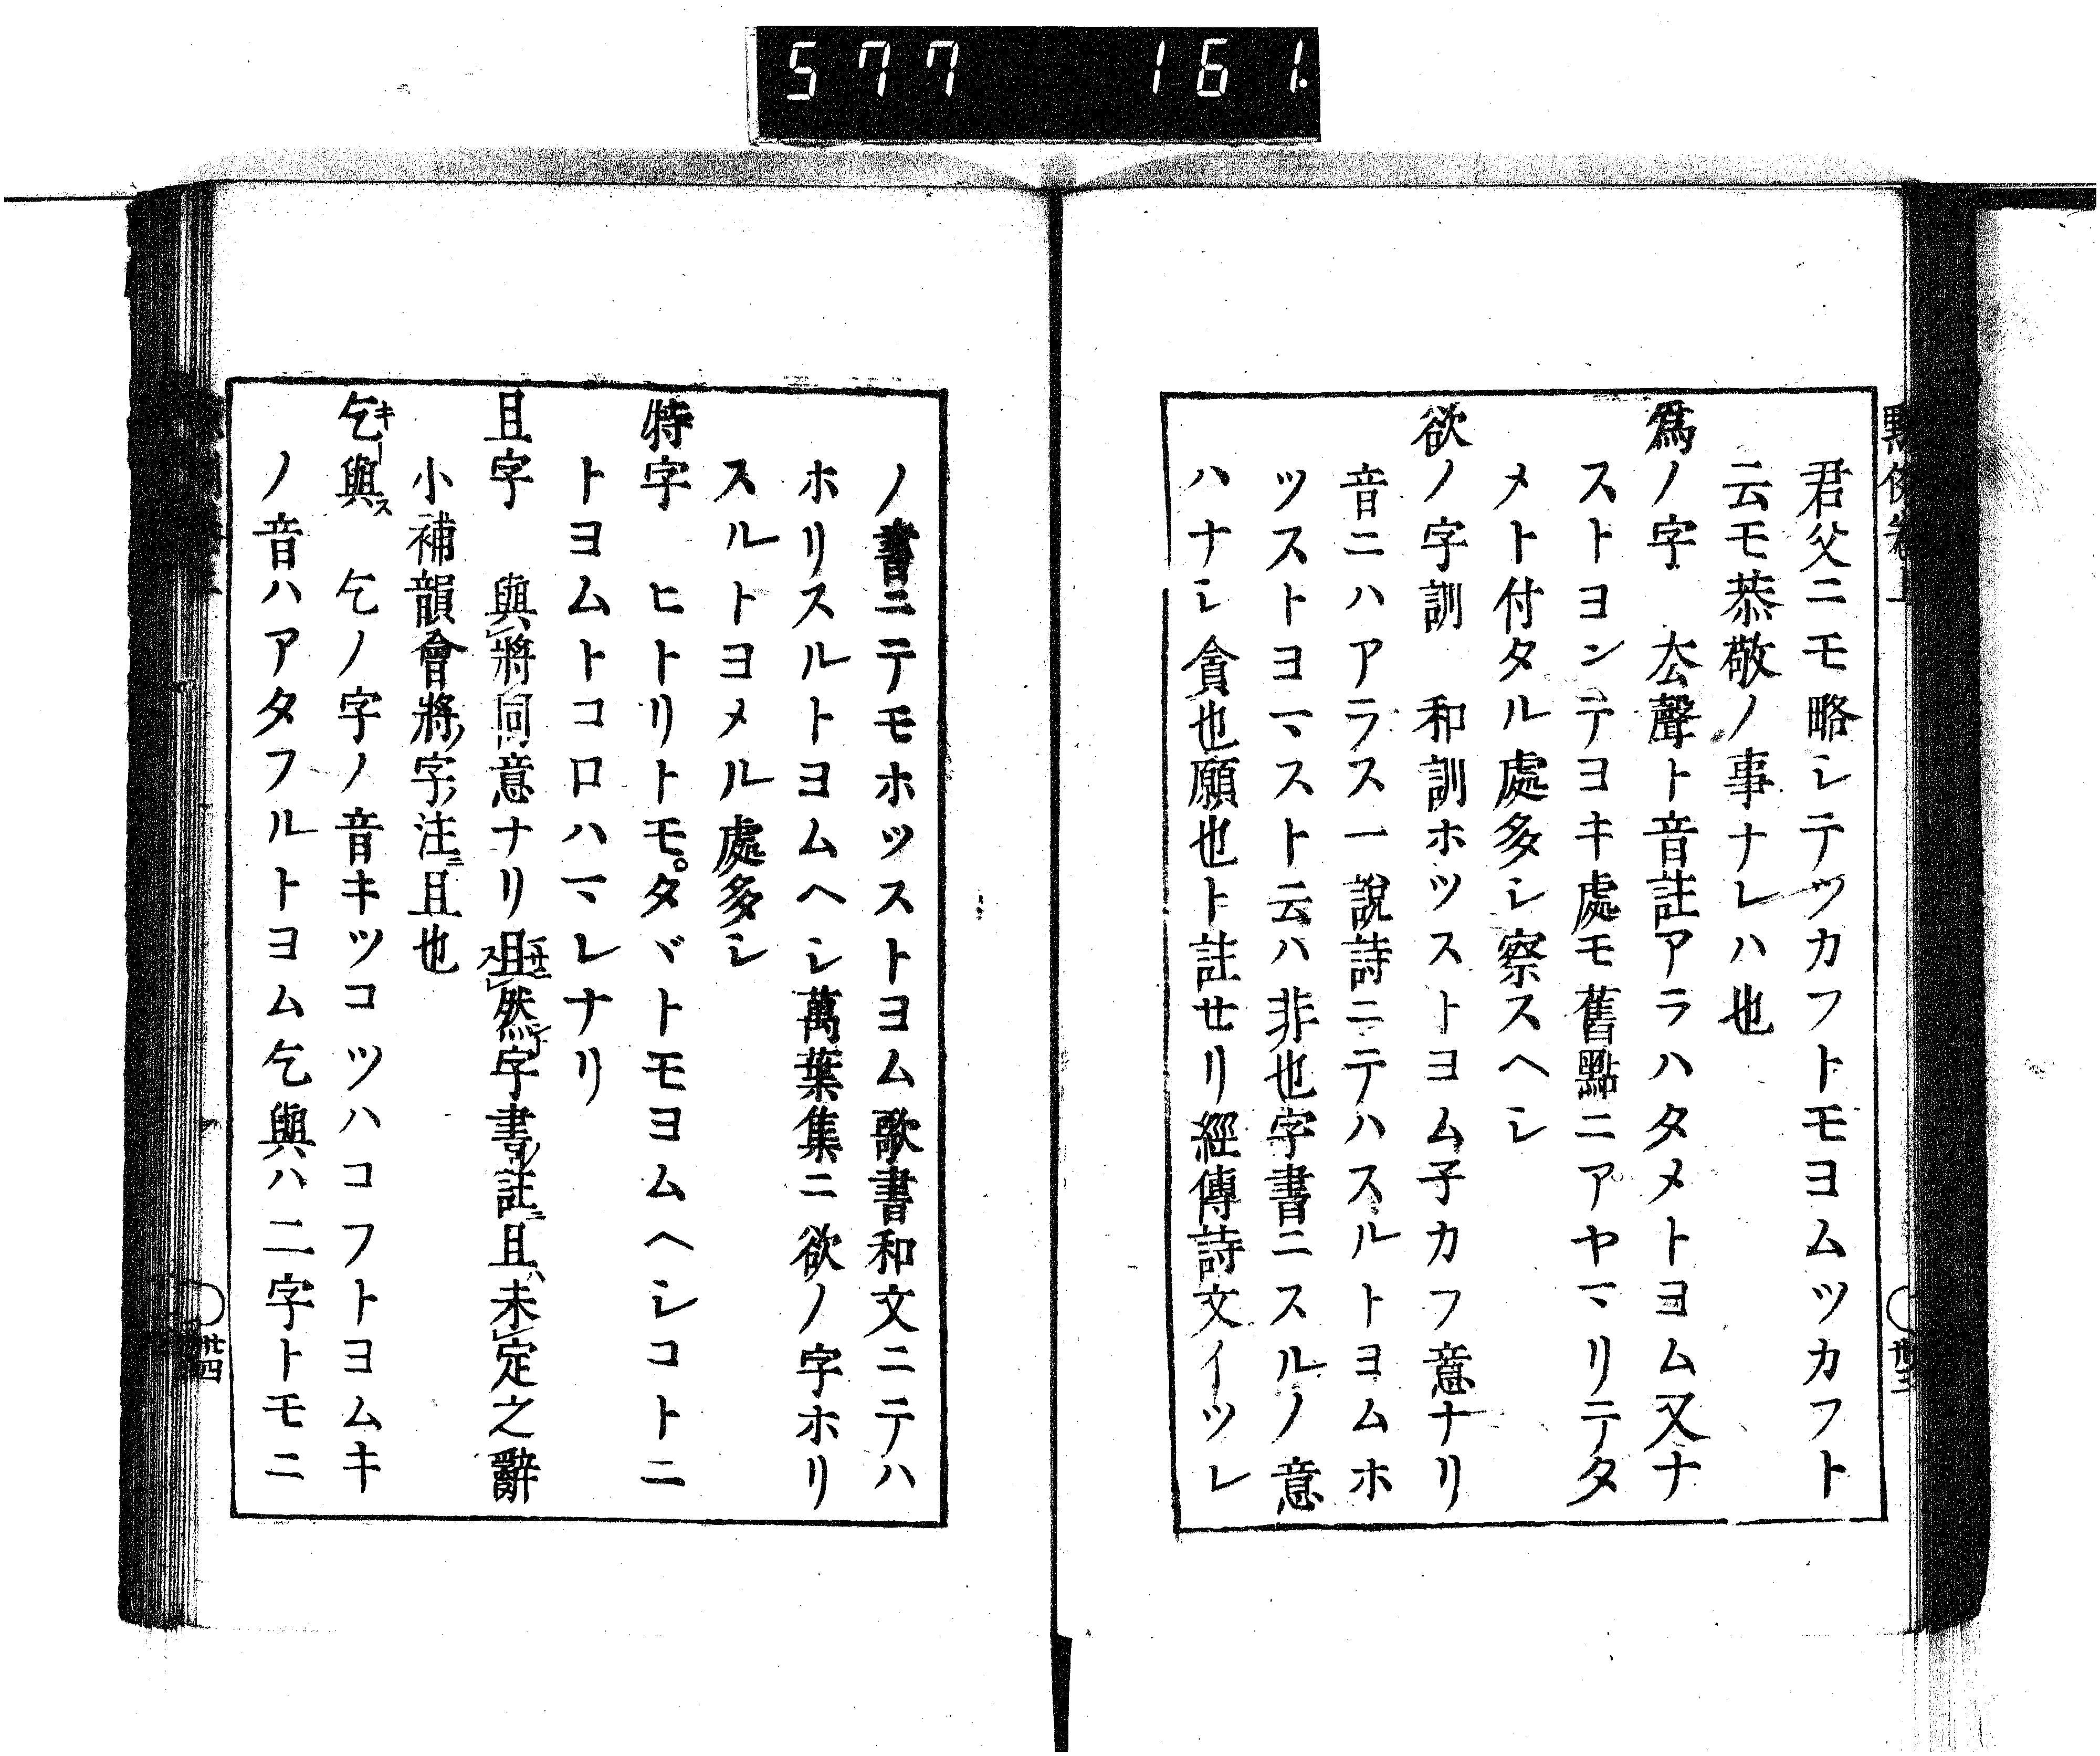 577 161.
君父ニモ略シテツカフトモヨムツカフト
云モ恭敬ノ事ナレハ也
爲ノ字 厺聲ト音註アラハタメトヨム又ナ
ストヨンテヨキ處モ舊點ニアヤマリテタ
メト付タル處多シ察スヘシ
欲ノ字訓 和訓ホツストヨム子カフ意ナリ
音ニハアラス一說詩ニテハスルトヨムホ
ツストヨマスト云ハ非也字書ニスルノ意
ハナシ貪也願也ト註セリ經傳詩文イツレ
ノ書ニテモホツストヨム歌書和文ニテハ
ホリスルトヨムヘシ萬葉集ニ欲ノ字ホリ
スルトヨメル處多シ
特字 ヒトリトモ。タヾトモヨムヘシコトニ
トヨムトコロハマレナリ
且字 與將同意ナリ且然字書註且未定之辭
小補韻會將字注且也
乞與 乞ノ字ノ音キツコツハコフトヨムキ
ノ音ハアタフルトヨム乞與ハ二字トモニ
廿四